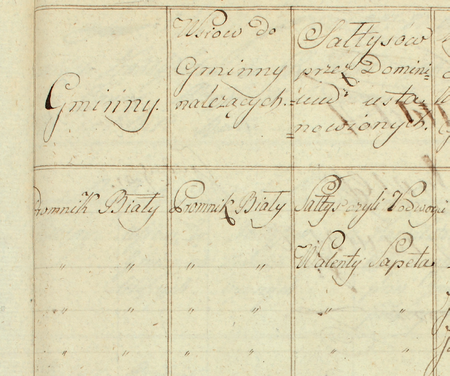 Gminny.
Wsiow do
Gminny
należących.
Sałtysów
przez Domini-
=um usta=
=nowionych.
Promnik Biały
Promnik Biały
Sałtys czyli
Walenty Sapeta